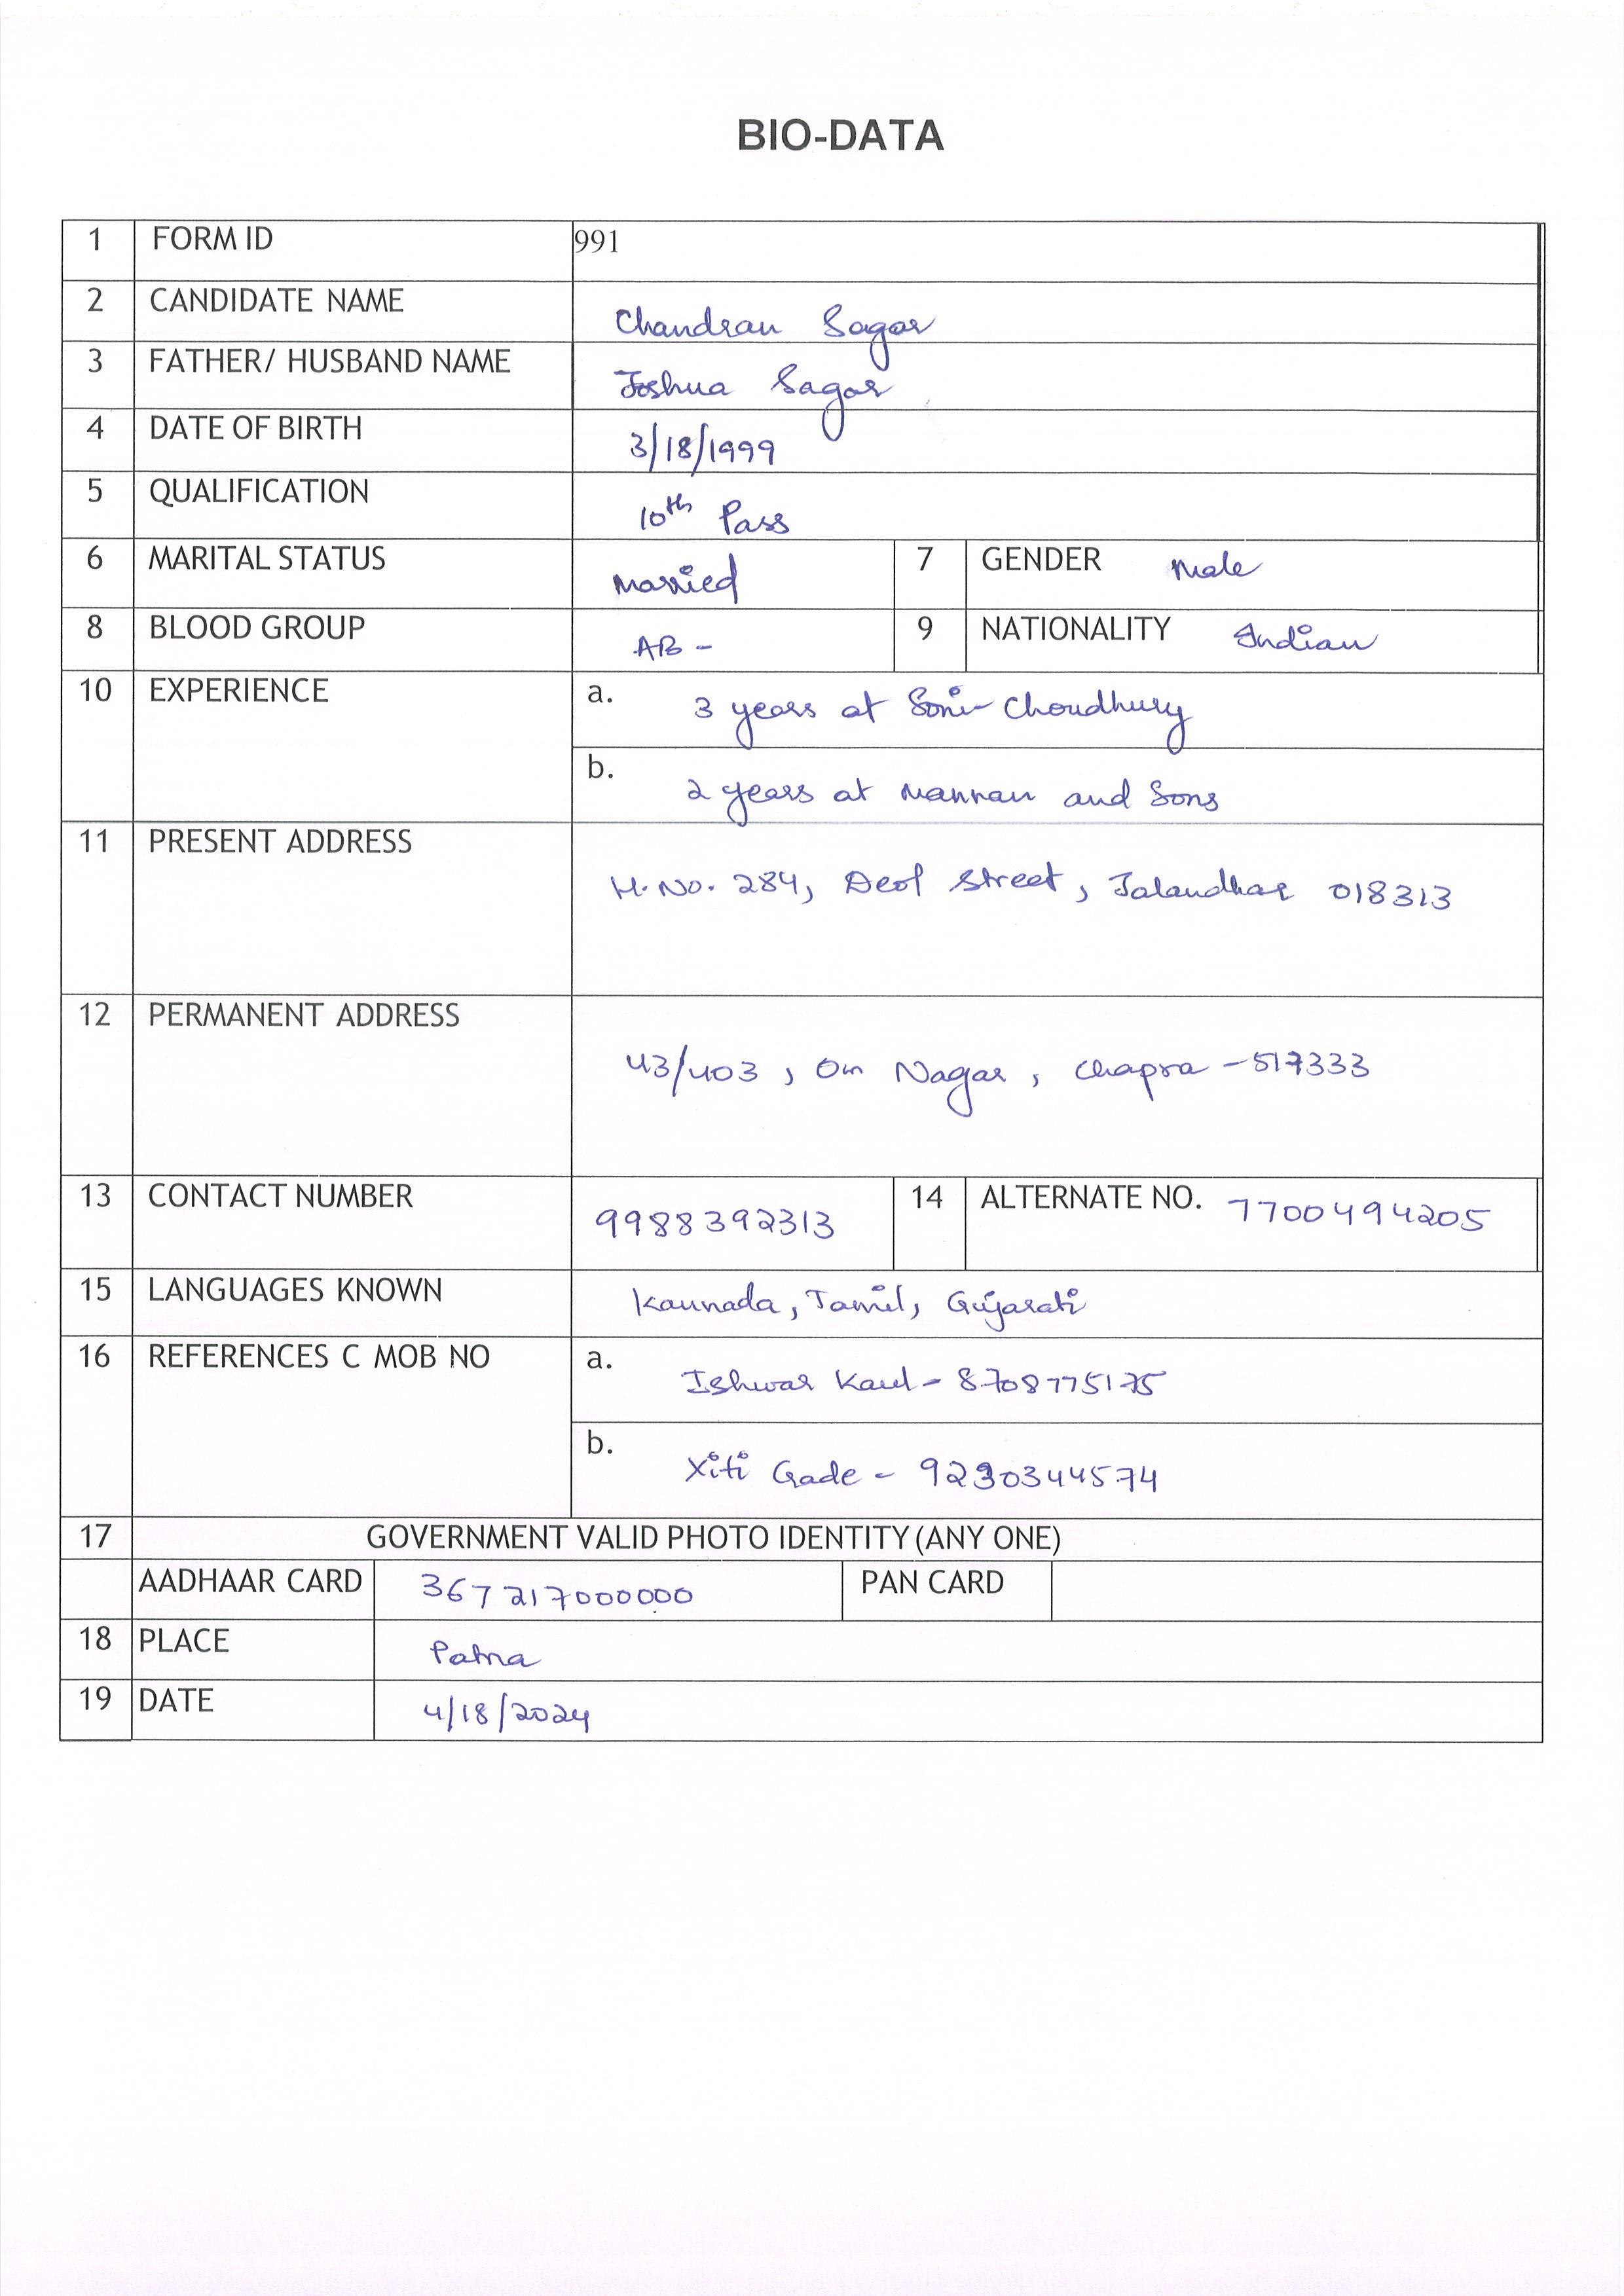 BIO-DATA
1 FORM ID 991
2 CANDIDATE NAME Chandran Sagar
3 FATHER/ HUSBAND NAME Joshua Sagar
4 DATE OF BIRTH 3/18/1999
5 QUALIFICATION 10th Pass
6 MARITAL STATUS Married 7 GENDER Male
8 BLOOD GROUP AB - 9 NATIONALITY Indian
10 EXPERIENCE a. 3 years at Soni-Choudhury
b. 2 years at Mannan and Sons
11 PRESENT ADDRESS
H. No. 284, Deol Street, Jalandhar 018313
12 PERMANENT ADDRESS
43/403, Om Nagar, Chapra - 517333
13 CONTACT NUMBER 9988392313 14 ALTERNATE NO. 7700494205
15 LANGUAGES KNOWN Kannada, Tamil, Gujarati
16 REFERENCES C MOB NO a. Ishwar Kaul - 8708775175
b. Xiti Gade - 9230344574
17 GOVERNMENT VALID PHOTO IDENTITY (ANY ONE)
AADHAAR CARD 367217000000 PAN CARD
18 PLACE Patna
19 DATE 4/18/2024